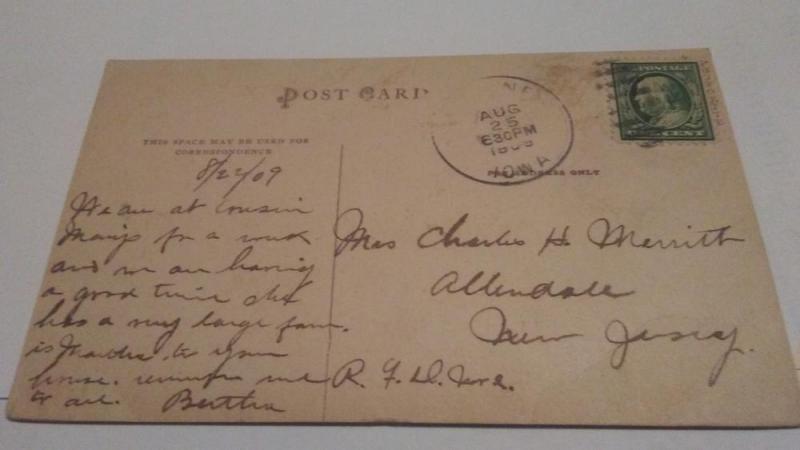 POST CARD
THIS SPACE MAY BE USED FOR
CORRESPONDENCE
AUG
25
630PM
1909
IOWA
POSTAGE
ONE CENT
FOR ADDRESS ONLY
8/24/09
We are at cousin
for a week
and we are having
a good time she
has a very large farm.
is to your
house. remember me
to all. Bertha
Mrs Charles H. Merritt
Allendale
New Jersey.
R. F. D.